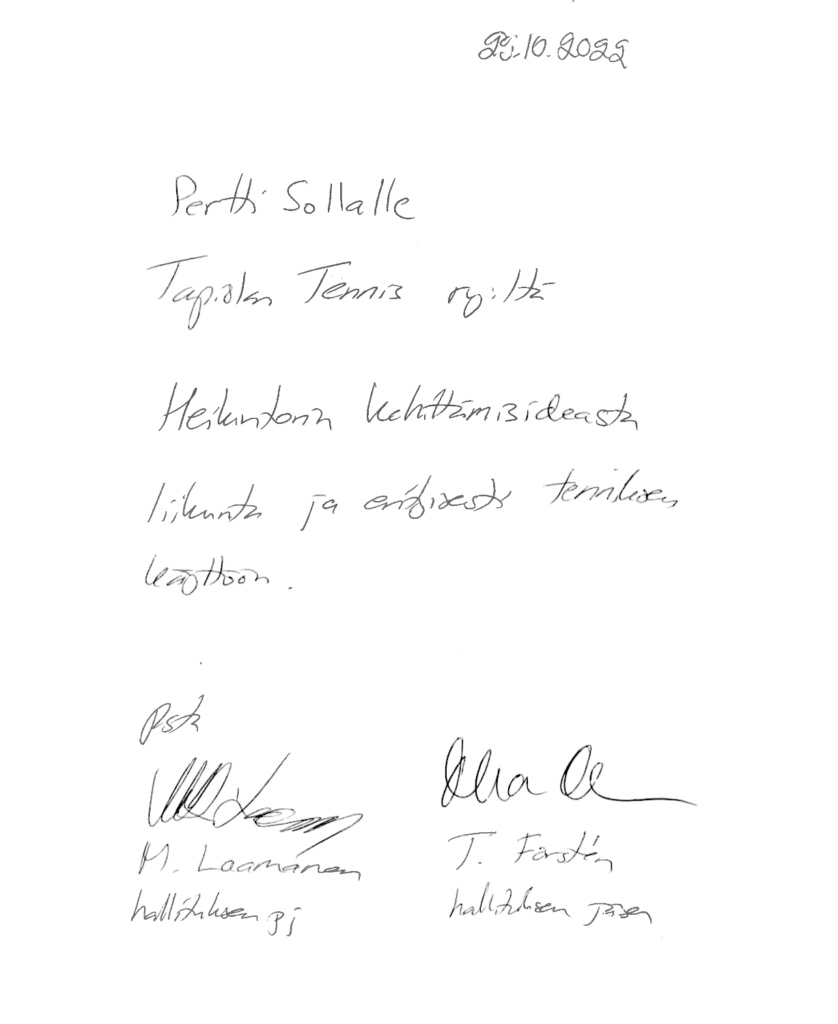 10.2022
Pertti Sollalle
Tapiolan Tennis ry:ltä
Heikintorin kehittämisideasta
liikunta ja erityisesti tenniksen
käyttöön.
psta
M. Laamanen T. Forstén
hallituksen pj hallituksen jäsen